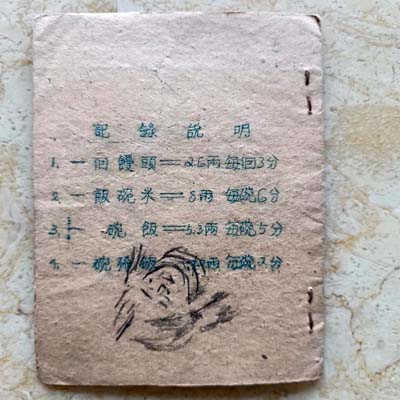 記錄說明
1. 一個饅頭=2.6兩每個3分
2. 一飯碗米=8兩 每碗6分
3. 碗飯=5.3兩每碗5分
4. 一碗稀飯 兩每碗2分